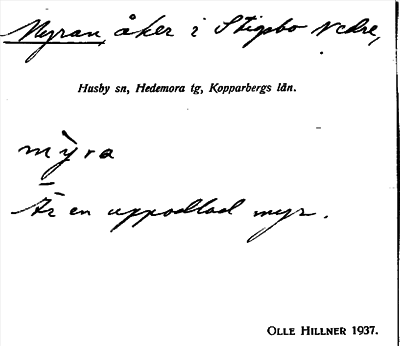 Myran, åker i Stigsbo Nedre,
Husby sn, Hedemora tg, Kopparbergs län.
mỳra
Är en uppodlad myr.
OLLE HILLNER 1937.